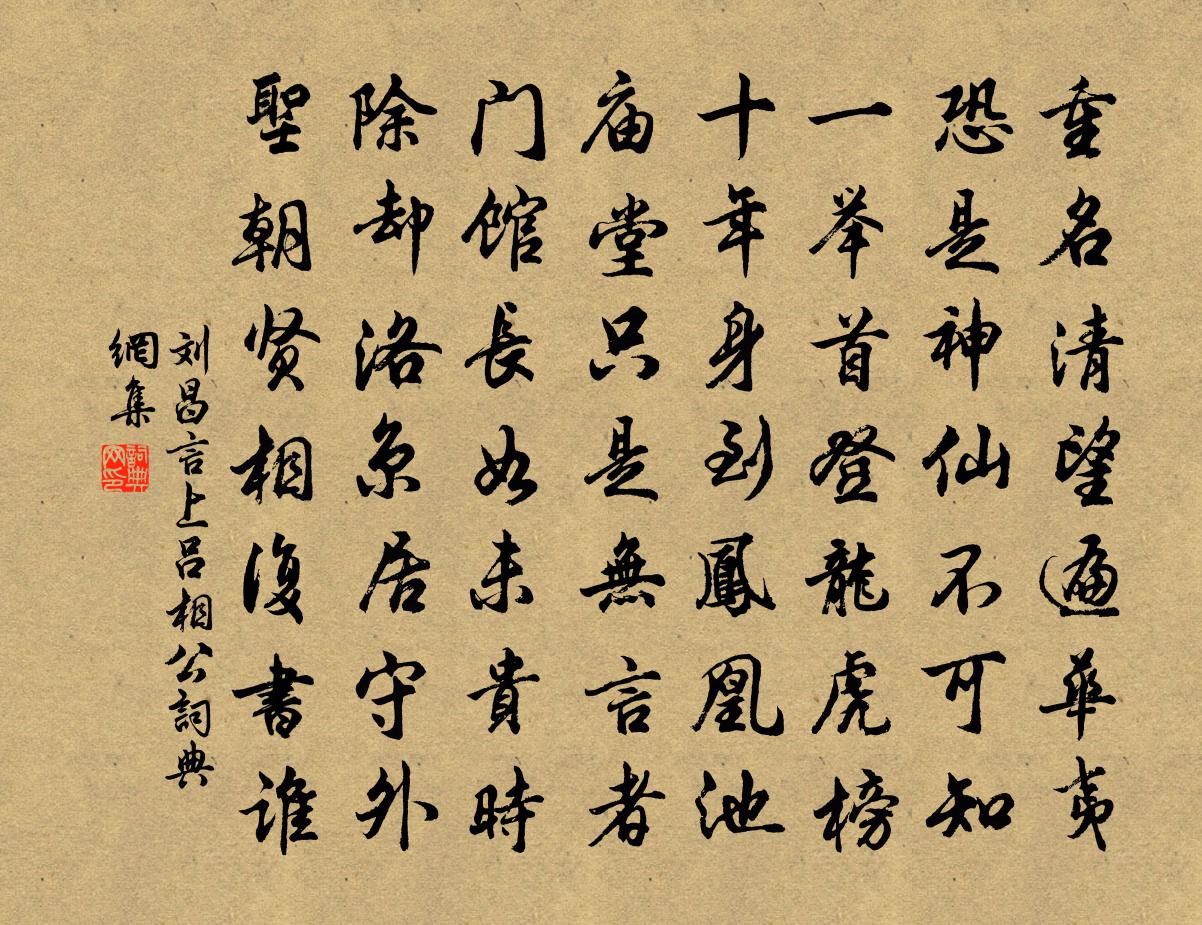 重名清望遍华夷
恐是神仙不可知
一举首登龍虎榜
十年身到鳳凰池
庙堂只是無言者
门馆長如未貴時
除却洛京居守外
聖朝贤相復書谁
刘昌言上吕相公詞典
網集
詞典网印